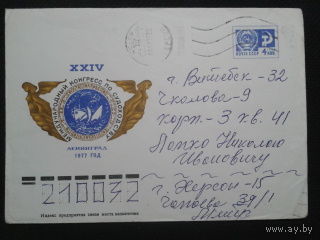 XXIV
МЕЖДУНАРОДНЫЙ КОНГРЕСС ПО СУДОХОДСТВУ
ЛЕНИНГРАД
1977 ГОД
ПОЧТА СССР
4
г. Витебск - 32
Чкалова - 9
корп. - 3 кв. 41
Лапко Николаю
Ивановичу
210032
г. Херсон - 15
Чапаева 39/1
Индекс предприятия связи места назначения
ay.by